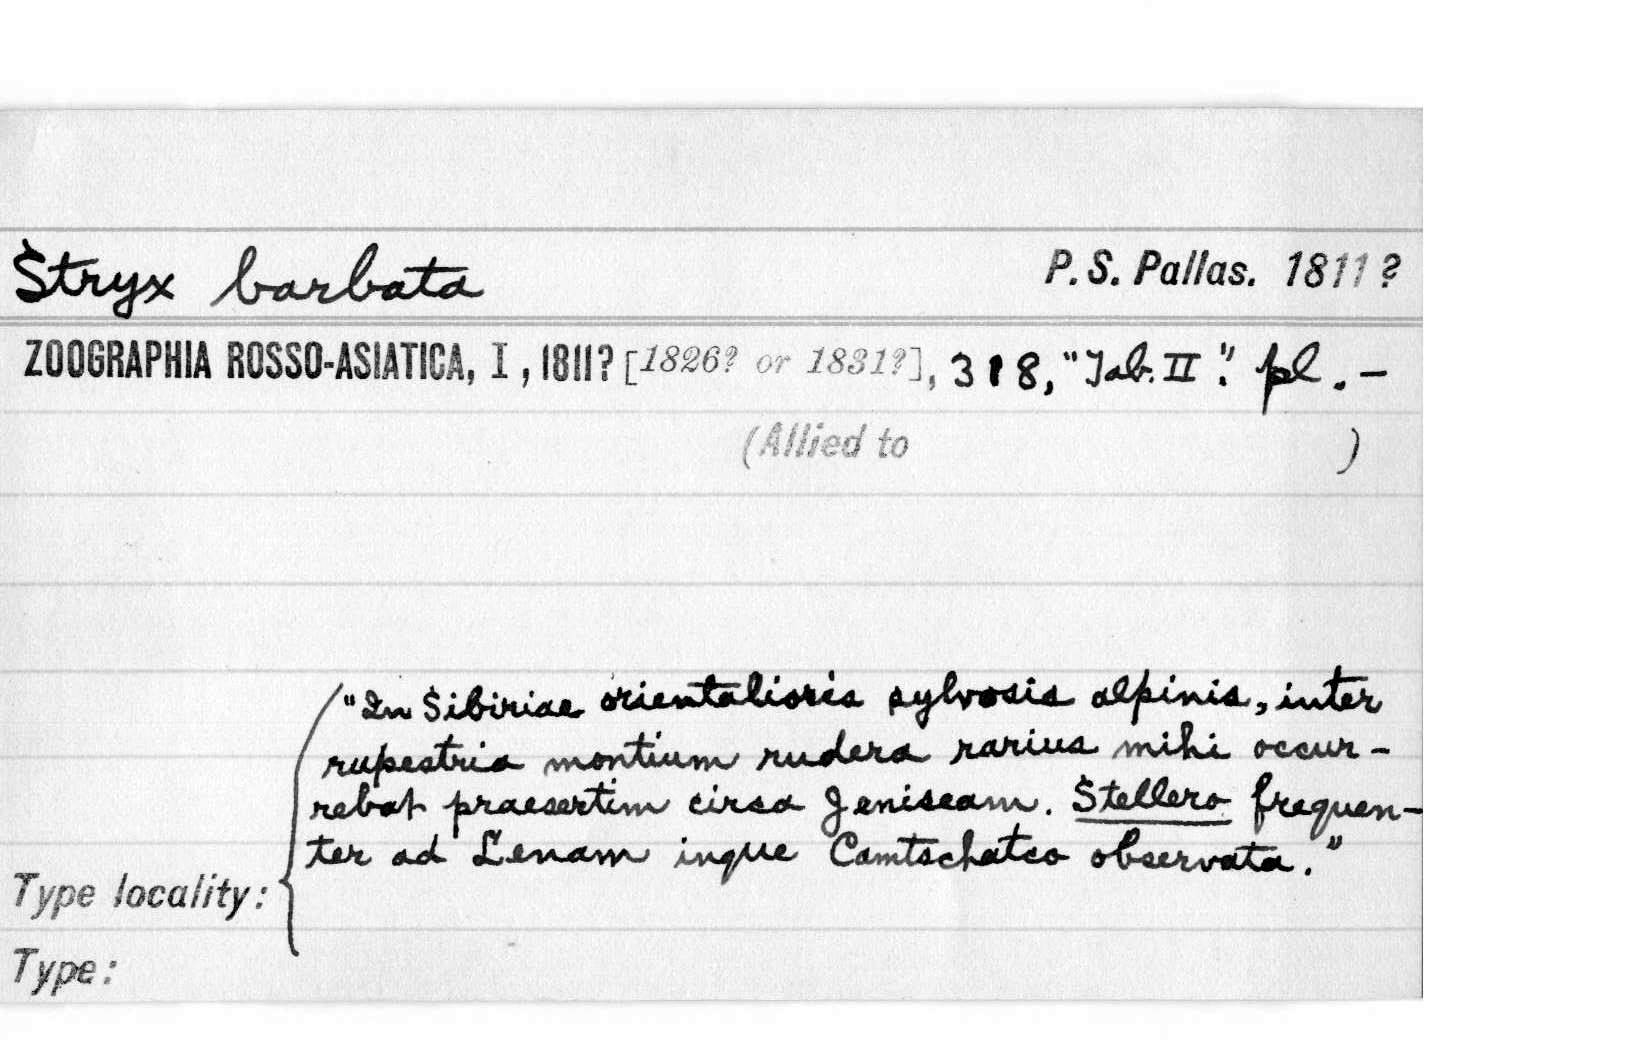 Stryx barbata P. S. Pallas. 1811?
ZOOGRAPHIA ROSSO-ASIATICA, I, 1811? [1826? or 1831?], 318, "Tab. II". pl. —
(Allied to )
"In Sibiriae orientalioris sylvosis alpinis, inter
rupestria montium rudera rarius mihi occur-
rebat praesertim circa Jeniseam. Stellero frequen-
ter ad Lenam inque Camtschatca observata."
Type locality:
Type: